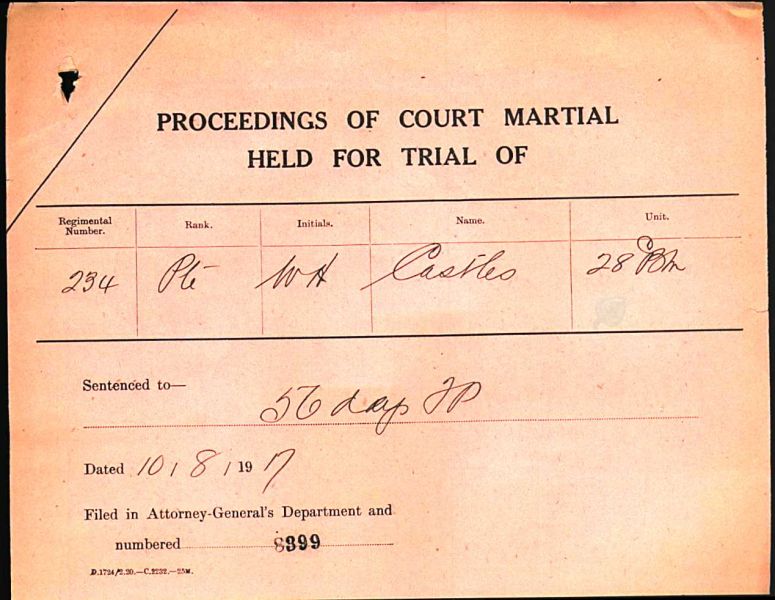 PROCEEDINGS OF COURT MARTIAL
HELD FOR TRIAL OF
Regimental Number. Rank. Initials. Name. Unit.
234 Pte W H Castles 28 Bn
Sentenced to—
56 days FP
Dated 10/8/1917
Filed in Attorney-General's Department and
numbered 8399
D.1724/2.20.—C.2232.—25M.